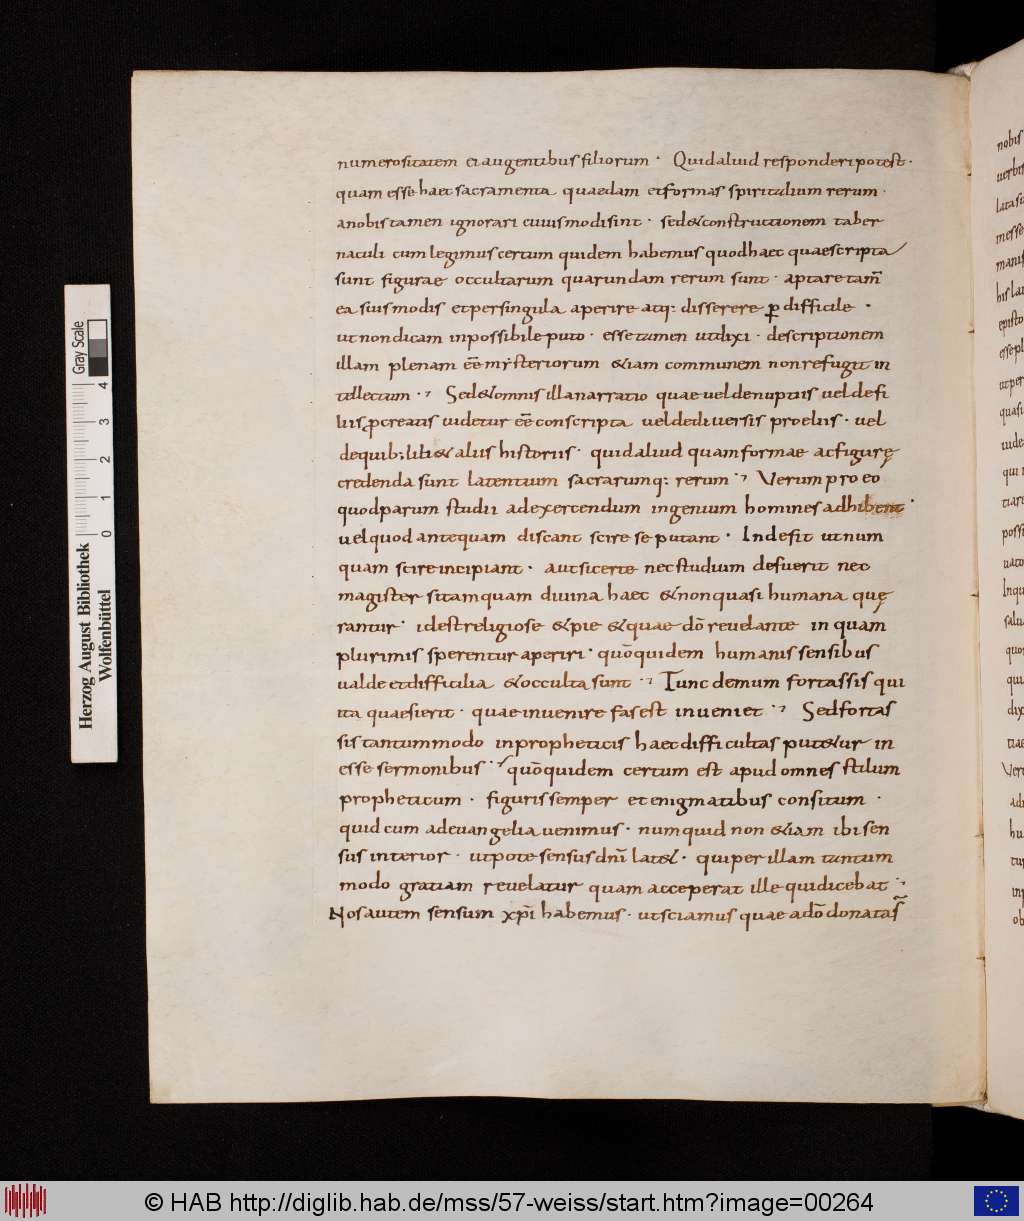 numerositatem ei augentibus filiorum · Quid aliud responderi potest ·
quam esse haec sacramenta quaedam et formas spiritalium rerum ·
a nobis tamen ignorari cuius modi sint · sed & constructionem taber
naculi cum legimus certum quidem habemus quod haec quae scripta
sunt figurae occultarum quarundam rerum sunt · aptare tam̅
ea suis modis et per singula aperire atq: disserere ꝑdifficile ·
ut non dicam inpossibile puto · esse tamen ut dixi · descriptionem
illam plenam ee̅ mysteriorum &iam communem non refugit in
tellectum · Sed & omnis illa narratio quae vel de nuptiis vel de fi
liis ꝓcreatis videtur ee̅ conscripta vel de diversis proeliis · vel
de quib; lib& aliis historiis · quid aliud quam formae ac figurę
credenda sunt latentium sacrarumq: rerum · Verum pro eo
quod parum studii ad exercendum ingenium homines adhibent ·
vel quod antequam discant scire se putant · Inde fit ut num
quam scire incipiant · aut si certe nec studium defuerit nec
magister sitamquam divina haec & non quasi humana quę
rantur · id est religiose & pie & quae do̅ revelante in quam
plurimis sperentur aperiri · quo̅ quidem humanis sensibus
valde et difficilia & occulta sunt · Tunc demum fortassis qui
ita quaesierit · quae invenire fas est inveniet · Sed fortas
sis tantummodo in propheticis haec difficultas put&ur in
esse sermonibus · quo̅ quidem certum est apud omnes stilum
propheticum · figuris semper et enigmatibus consitum ·
quid cum ad evangelia venimus · numquid non &iam ibi sen
sus interior · utpote sensus dn̅i lat& · qui per illam tantum
modo gratiam revelatur quam acceperat ille qui dicebat ·
Nos autem sensum xp̅i habemus · ut sciamus quae a do̅ donata s̅
nobis
verbis
messe
manis
epistol
ut per
quasi
qui
tiare
possi
quo
qui
dixi
tiae
Ver
hu
tur
ob
Gray Scale
0 1 2 3 4
Herzog August Bibliothek
Wolfenbüttel
© HAB http://diglib.hab.de/mss/57-weiss/start.htm?image=00264